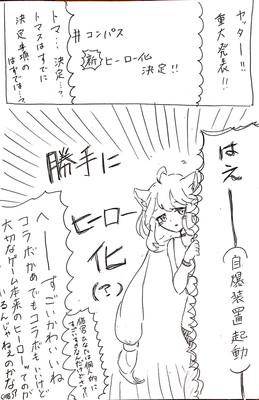 ヤッター!!
重大発表!!
#コンパス
新ヒーロー化
決定!!
トマ…決定…?
トマスはすでに
決定事項の
はずでは…?
はえーー
(自爆装置起動)
勝手に
ヒーロー
化
(?)
へーーすごいかわいいね
コラボかめでもコラボもいいけど
大切なゲーム本来のヒーローってのが
いるんじゃねぇのかな?